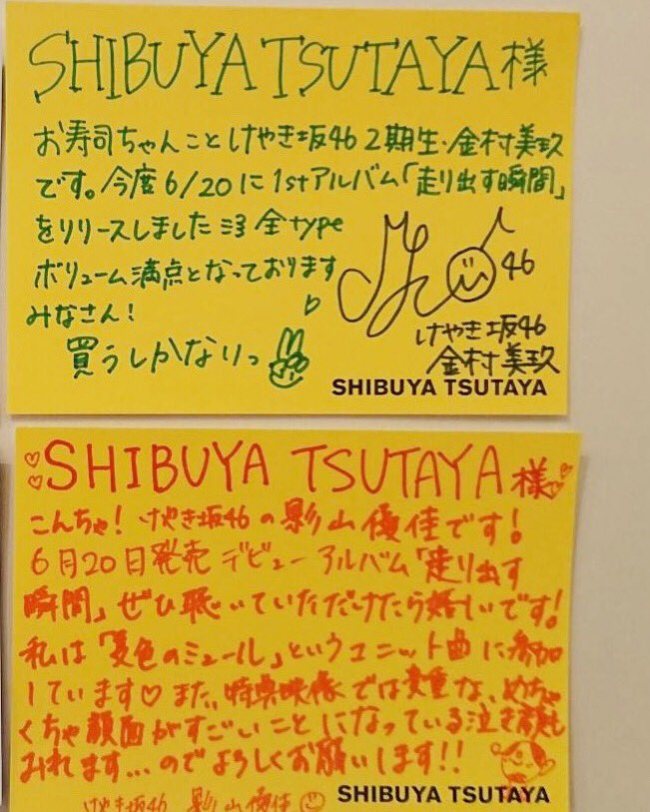 SHIBUYA TSUTAYA様
お寿司ちゃんことけやき坂46 2期生・金村美玖
です。今度6/20に1stアルバム「走り出す瞬間」
をリリースしました 全type
ボリューム満点となっております
みなさん!
買うしかなりっ
46
けやき坂46
金村美玖
SHIBUYA TSUTAYA
SHIBUYA TSUTAYA様
こんちゃ!けやき坂46の影山優佳です!
6月20日発売 デビューアルバム「走り出す
瞬間」ぜひ聴いていただけたら嬉しいです!
私は「夏色のミュール」というユニット曲に参加
しています♡また、特典映像では貴重な、めちゃ
くちゃ顔面がすごいことになっている泣き顔も
おれます...のでよろしくお願いします!!
けやき坂46 影山優佳
SHIBUYA TSUTAYA